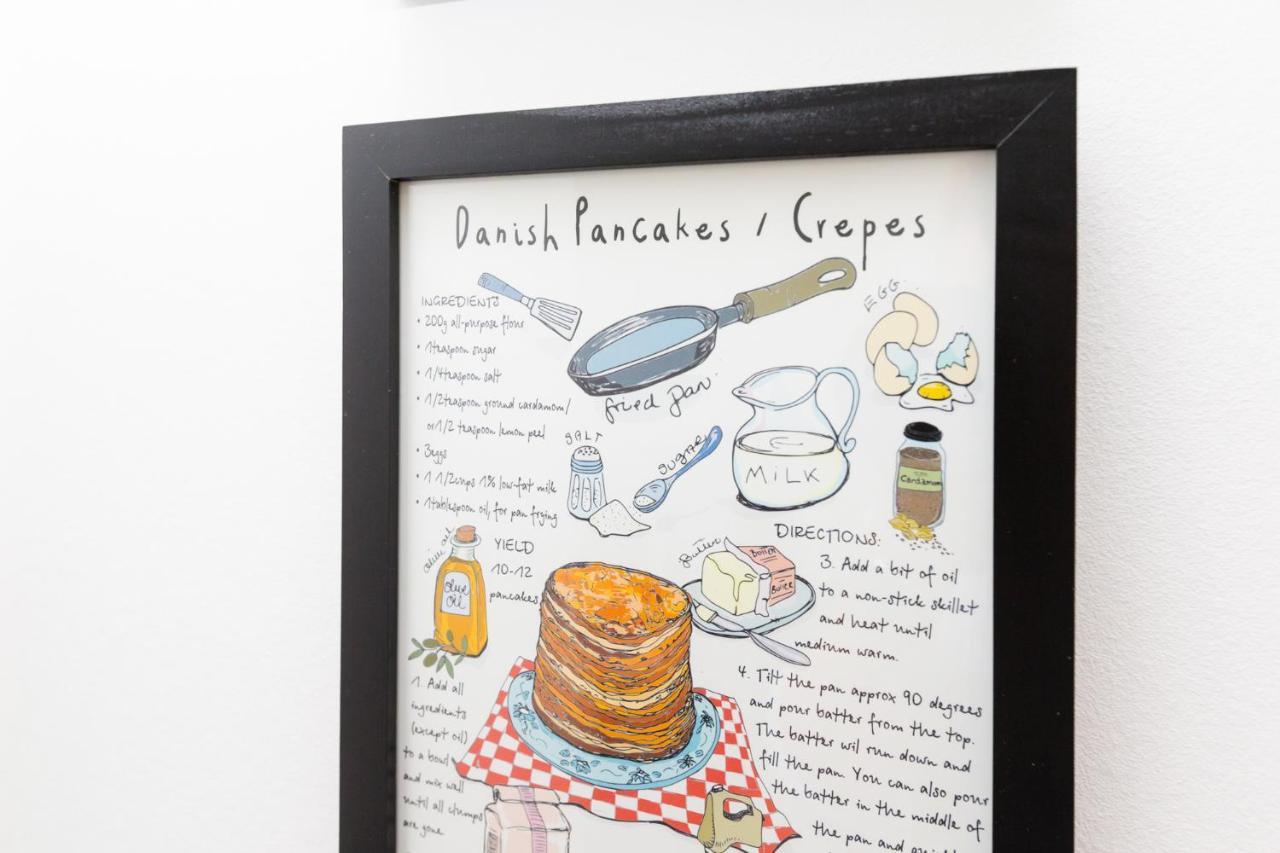 Danish Pancakes / Crepes
INGREDIENTS
• 200g all-purpose flour
• 1 teaspoon sugar
• 1/4 teaspoon salt
• 1/2 teaspoon ground cardamom/
or 1/2 teaspoon lemon peel
• 3 eggs
• 1 1/2 cups 1% low-fat milk
• 1 tablespoon oil, for pan frying
fried pan
EGG
SALT
SUGAR
MILK
Cardamom
olive oil
olive
oil
YIELD
10-12
pancakes
Butter
Butter
Butter
1. Add all
ingredients
(except oil)
to a bowl
and mix well
until all clumps
are gone
DIRECTIONS:
3. Add a bit of oil
to a non-stick skillet
and heat until
medium warm.
4. Tilt the pan approx 90 degrees
and pour batter from the top.
The batter wil run down and
fill the pan. You can also pour
the batter in the middle of
the pan and